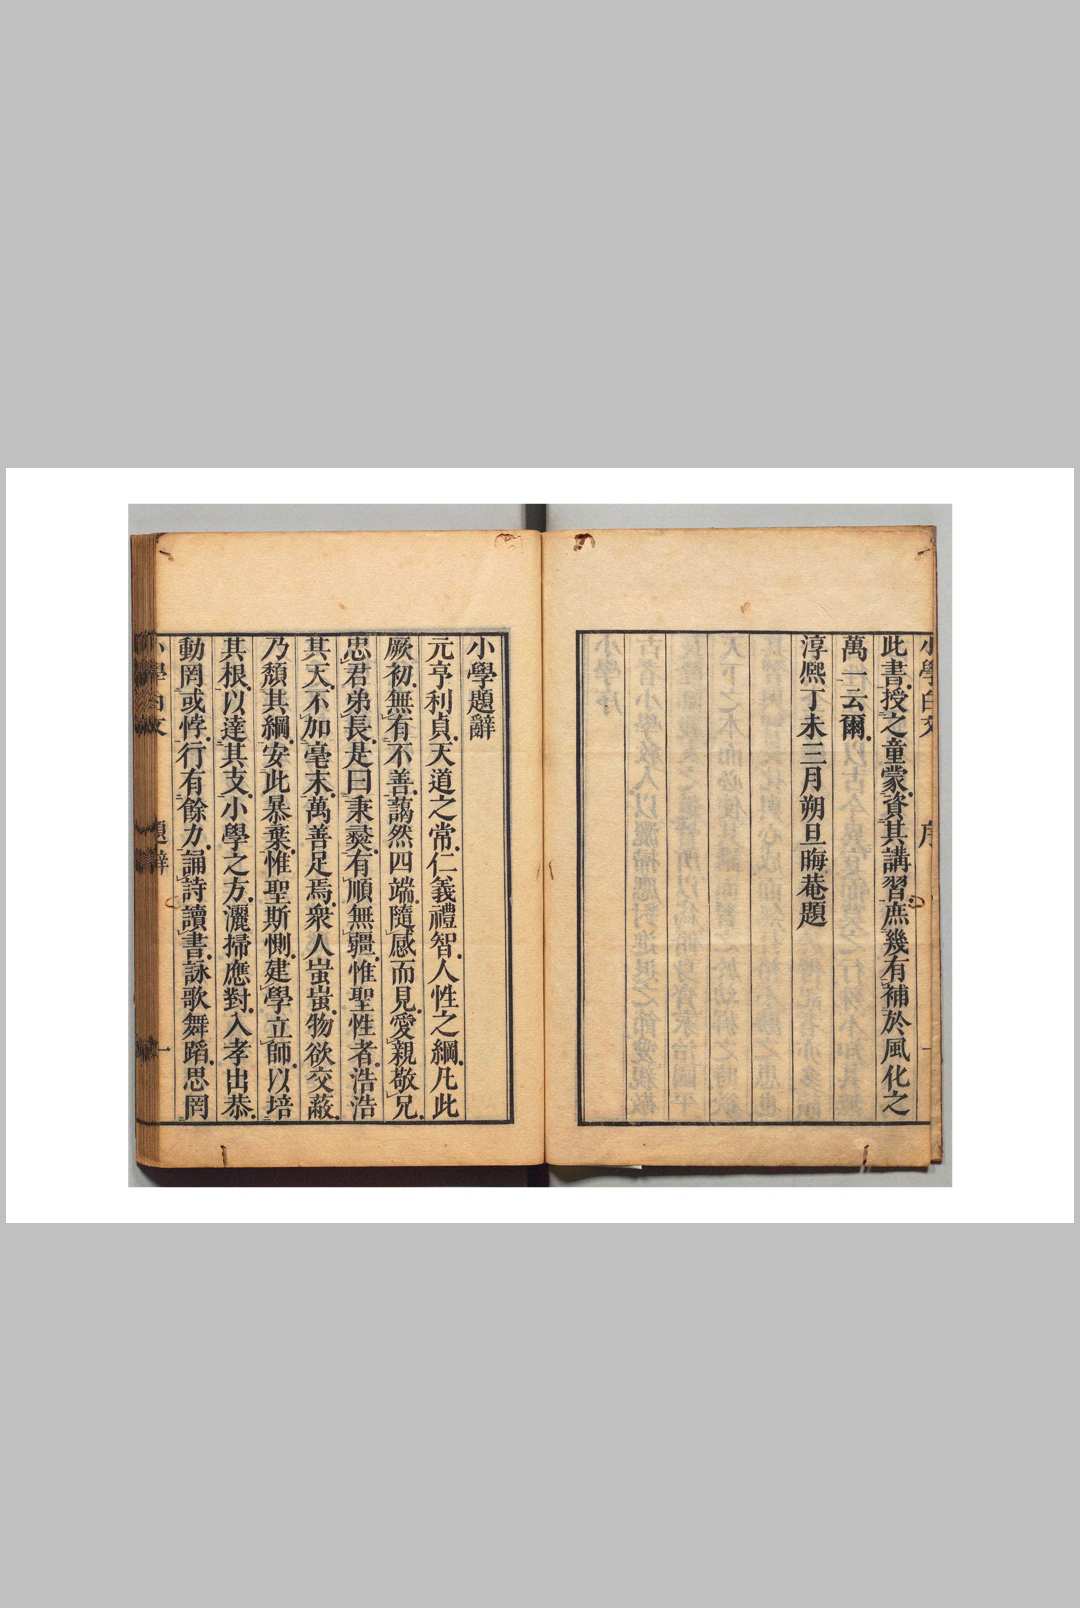 此書授之童蒙資其講習庶幾有補於風化之
萬一云爾
淳熈丁未三月朔旦晦菴題
小學題辭
元亨利貞天道之常仁義禮智人性之綱凡此
厥初無有不善藹然四端隨感而見愛親敬兄
忠君弟長是曰秉彝有順無彊惟聖性者浩浩
其天不加毫末萬善足焉衆人蚩蚩物欲交蔽
乃頹其綱安此暴棄惟聖斯惻建學立師以培
其根以達其支小學之方灑掃應對入孝出恭
動罔或悖行有餘力誦詩讀書詠歌舞蹈思罔